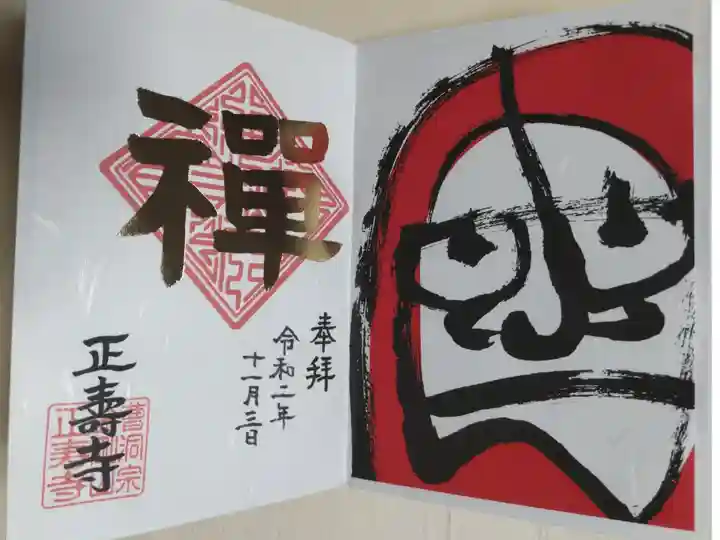 奉拝
令和二年
十一月三日
禅
正壽寺
曹洞宗
正寿寺